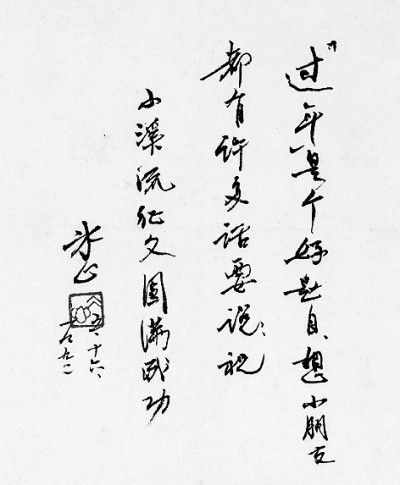 “过年”是个好题目、想小朋友
都有许多话要说、祝
小溪流征文圆满成功
冰心
十六、